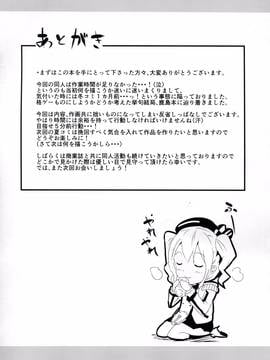 あとがき
・まずはこの本を手にとって下さった方々、大変ありがとうございます。
今回の同人は作業時間が足りなかった・・・!(泣)
というのも当初何を描こうか迷いに迷いまして、
気付いた時には冬コミ1カ月前・・・っ!という事態に陥っておりました。
格ゲーものにしようかどうか考えた挙句結局、鹿島本に辿り着きました。
今回は内容、作画共に拙いものになってしまい反省しっぱなしでございます。
やはり時間には余裕を持って行動しなければいけませんね(汗)
目指せ5分前行動・・・!
次回の夏コミに挽回すべく気合を入れて作品を作りたいと思いますので
どうぞお楽しみに!
(さて次は何を描こうかしら・・・)
しばらくは商業誌と共に同人活動も続けていきたいと思っておりますので
どこかで見かけた際は優しい目で見守って頂けると幸いです。
では、また次回お会いしましょう!
やれやれ